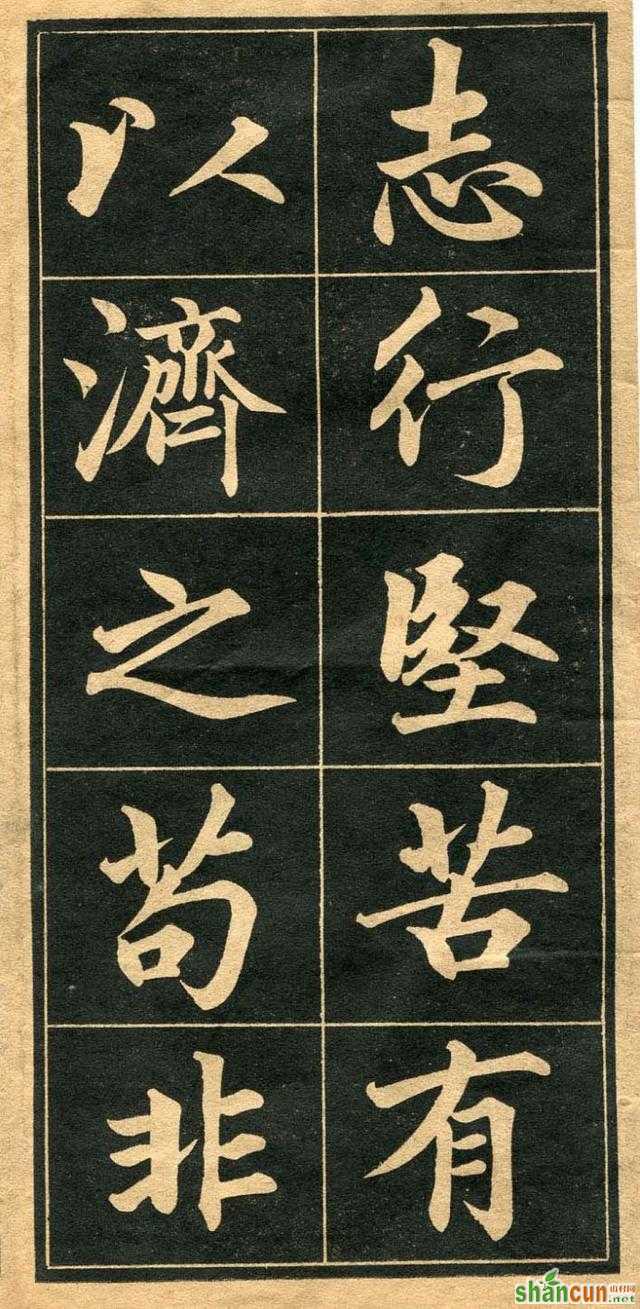 志行堅苦有
以濟之苟非
shancun山村网
.net